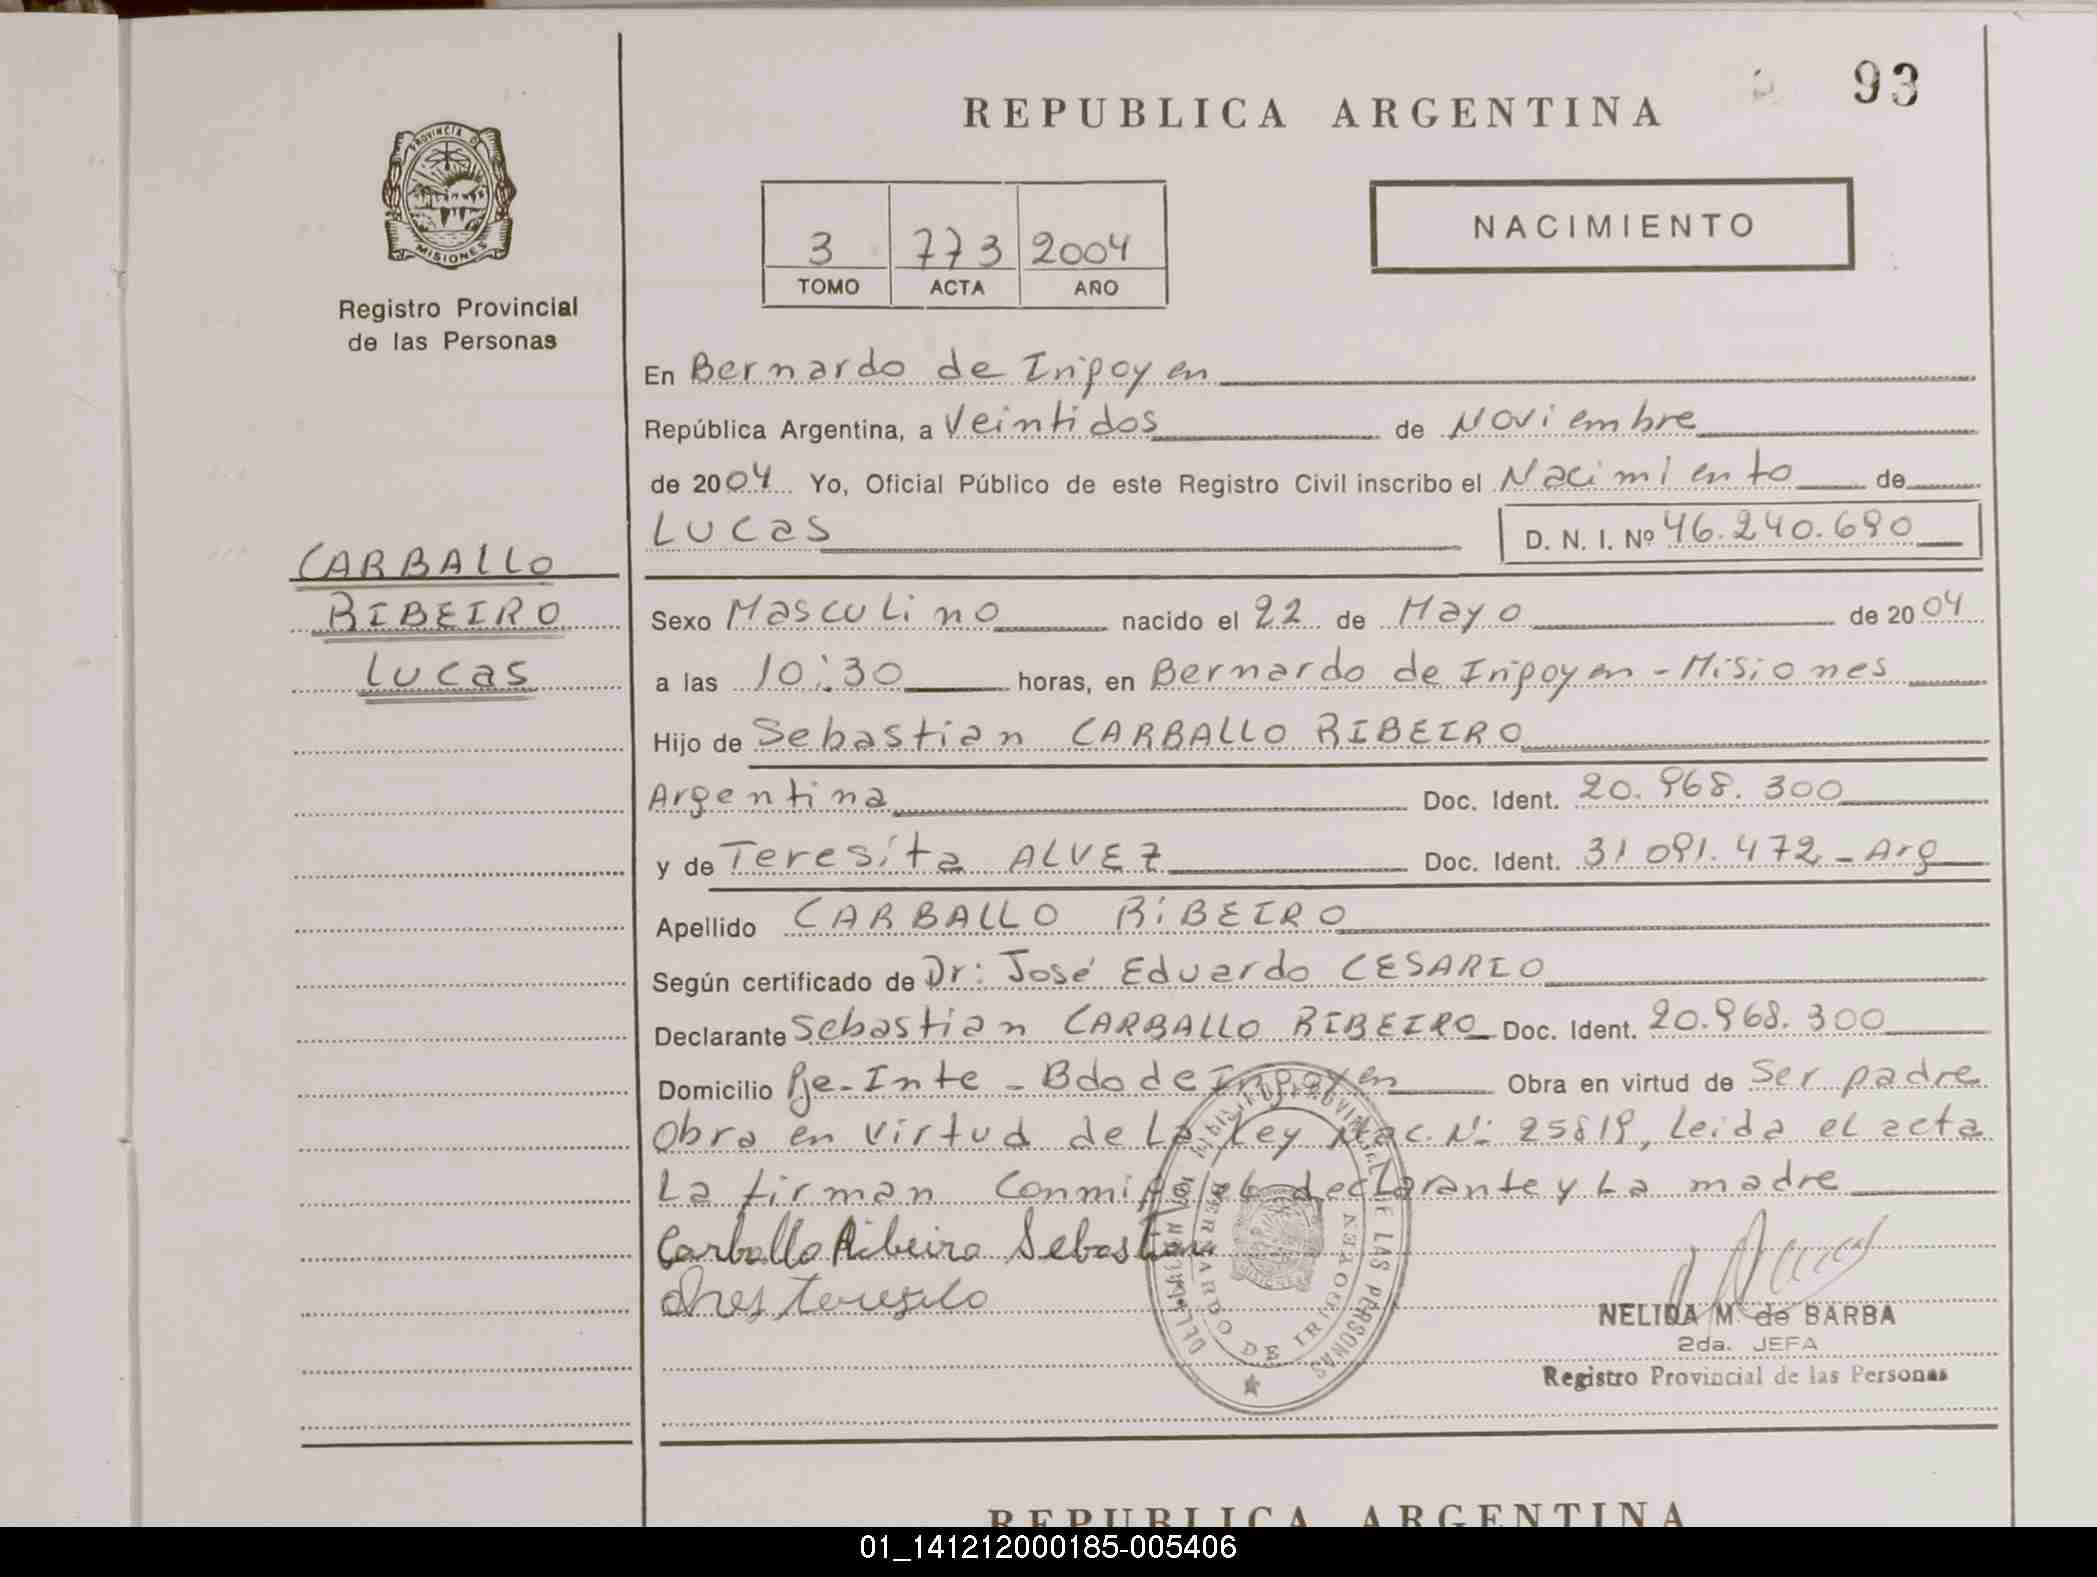 93
REPUBLICA ARGENTINA
PROVINCIA D
MISIONES
Registro Provincial
de las Personas
NACIMIENTO
3 773 2004
TOMO ACTA AÑO
En Bernardo de Irigoyen
República Argentina, a Veintidos de Noviembre
de 2004 Yo, Oficial Público de este Registro Civil inscribo el Nacimiento de
Lucas D. N. I. Nº 46.240.690
CARBALLO
RIBEIRO
Lucas
Sexo Masculino nacido el 22 de Mayo de 2004
a las 10:30 horas, en Bernardo de Irigoyen - Misiones
Hijo de Sebastian CARBALLO RIBEIRO
Argentina Doc. Ident. 20.968.300
y de Teresita ALVEZ Doc. Ident. 31 091.472 - Arg
Apellido CARBALLO RiBEIRO
Según certificado de Dr: José Eduardo CESARIO
Declarante Sebastian CARBALLO RIBEIRO Doc. Ident. 20.968.300
Domicilio Pje - Inte - Bdo de Irigoyen Obra en virtud de Ser padre
Obra en virtud de La Ley Nac. Nº 25819, Leida el acta
La firman conmigo el declarante y La madre
Carballo Ribeiro Sebastian
NELIDA M. de BARBA
2da. JEFA
Registro Provincial de las Personas
PROVINCIAL DE LAS PERSONAS
BERNARDO DE IRIGOYEN
REPUBLICA ARGENTINA
01_141212000185-005406